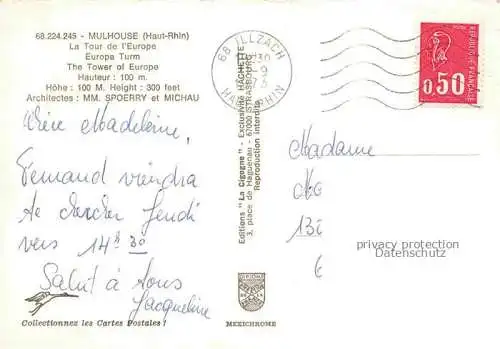 68.224.245 - MULHOUSE (Haut-Rhin)
La Tour de l'Europe
Europa Turm
The Tower of Europe
Hauteur : 100 m.
Höhe : 100 M. Height : 300 feet
Architectes : MM. SPOERRY et MICHAU
Madeleine,
Fernand viendra
te chercher Jeudi
vers 14h 30
Salut à tous
Jacqueline
Collectionnez les Cartes Postales !
Editions "La Cigogne" - Exclusivité HACHETTE
3, place de Haguenau - 67000 STRASBOURG
Reproduction interdite
MEXICHROME
68 ILLZACH
HAUT-RHIN
RÉPUBLIQUE FRANÇAISE
0,50
Madame
privacy protection
Datenschutz